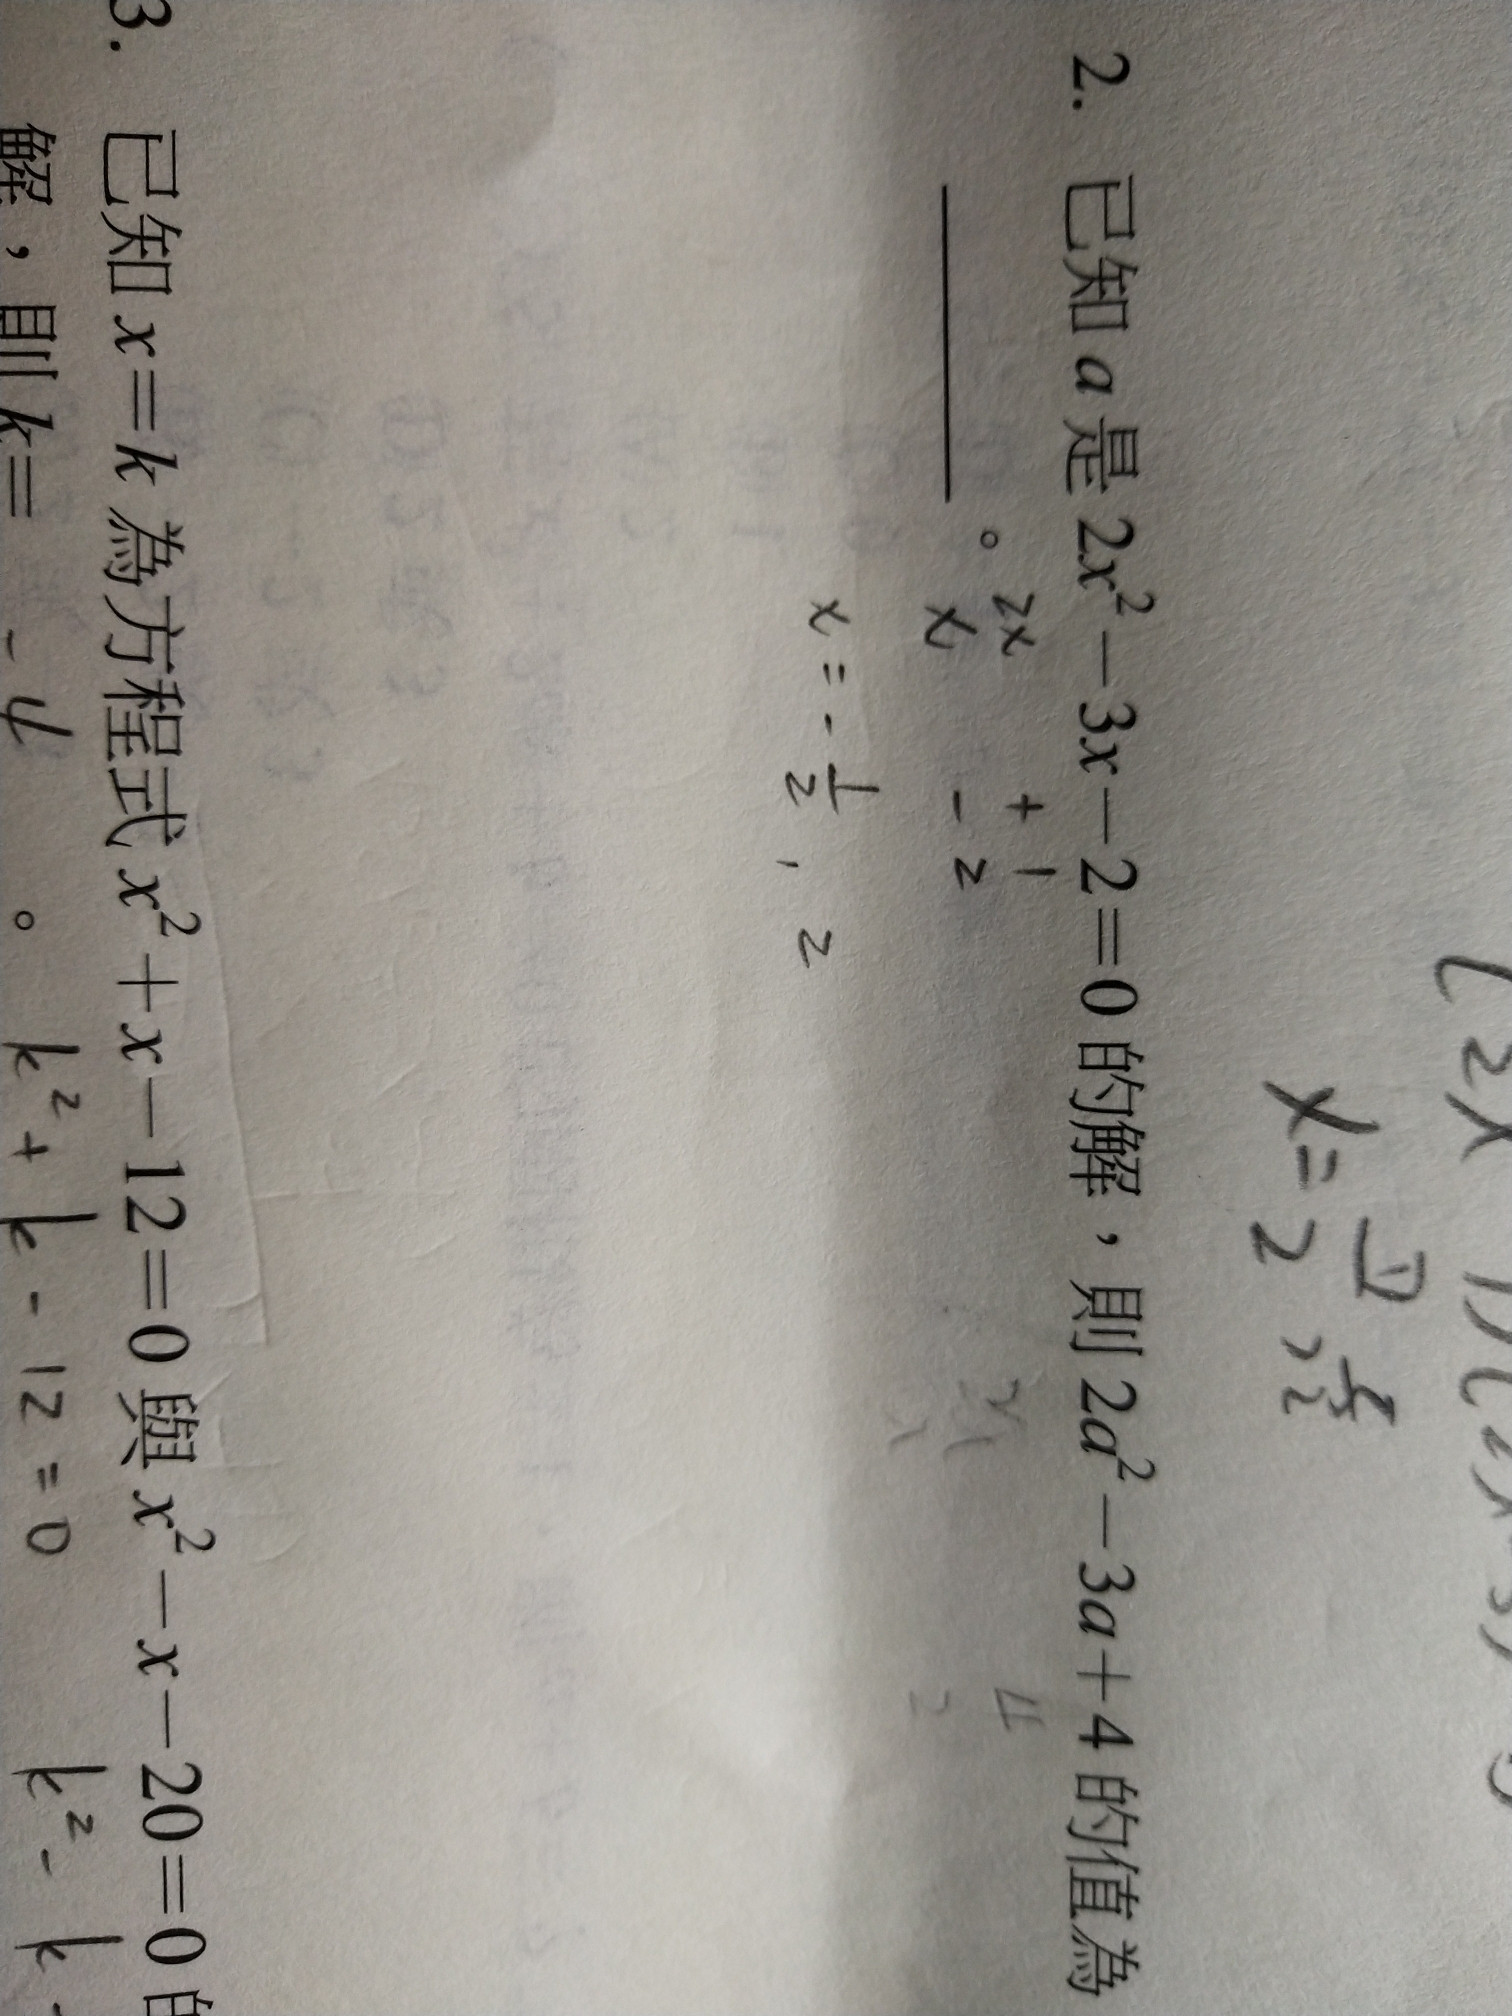 (2x
x=
2
2. 已知 a 是 2x²-3x-2=0 的解，則 2a²-3a+4 的值為
＿＿＿＿。
2x +1
x -2
x = -1/2 , 2
3. 已知 x=k 為方程式 x²+x-12=0 與 x²-x-20=0 的
解，則 k= -4 。 k²+k-12=0 k²-k